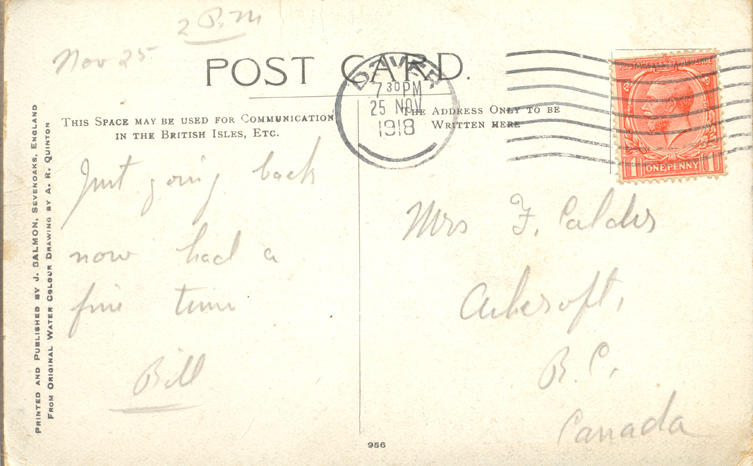 2 P.M
Nov 25
POST CARD.
DOVER
7 30 PM
25 NOV
1918
THIS SPACE MAY BE USED FOR COMMUNICATION
IN THE BRITISH ISLES, ETC.
THE ADDRESS ONLY TO BE
WRITTEN HERE
1 ONE PENNY 1
Just going back
now had a
fine time
Bill
Mrs F. Calder
Ashcroft,
B.C.
Canada
PRINTED AND PUBLISHED BY J. SALMON, SEVENOAKS, ENGLAND
FROM ORIGINAL WATER COLOUR DRAWING BY A. R. QUINTON
956